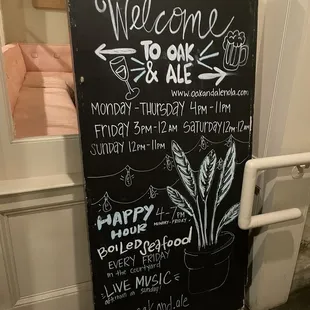 Welcome
TO OAK
& ALE
www.oakandalenola.com
MONDAY-THURSDAY 4PM-11PM
FRIDAY 3PM-12AM SATURDAY 12PM-12AM
SUNDAY 12PM-11PM
HAPPY 4-7PM
HOUR MONDAY-FRIDAY
BOILED SEAFOOD
EVERY FRIDAY
in the courtyard
LIVE MUSIC
afternoon on Sunday!
oakand.ale